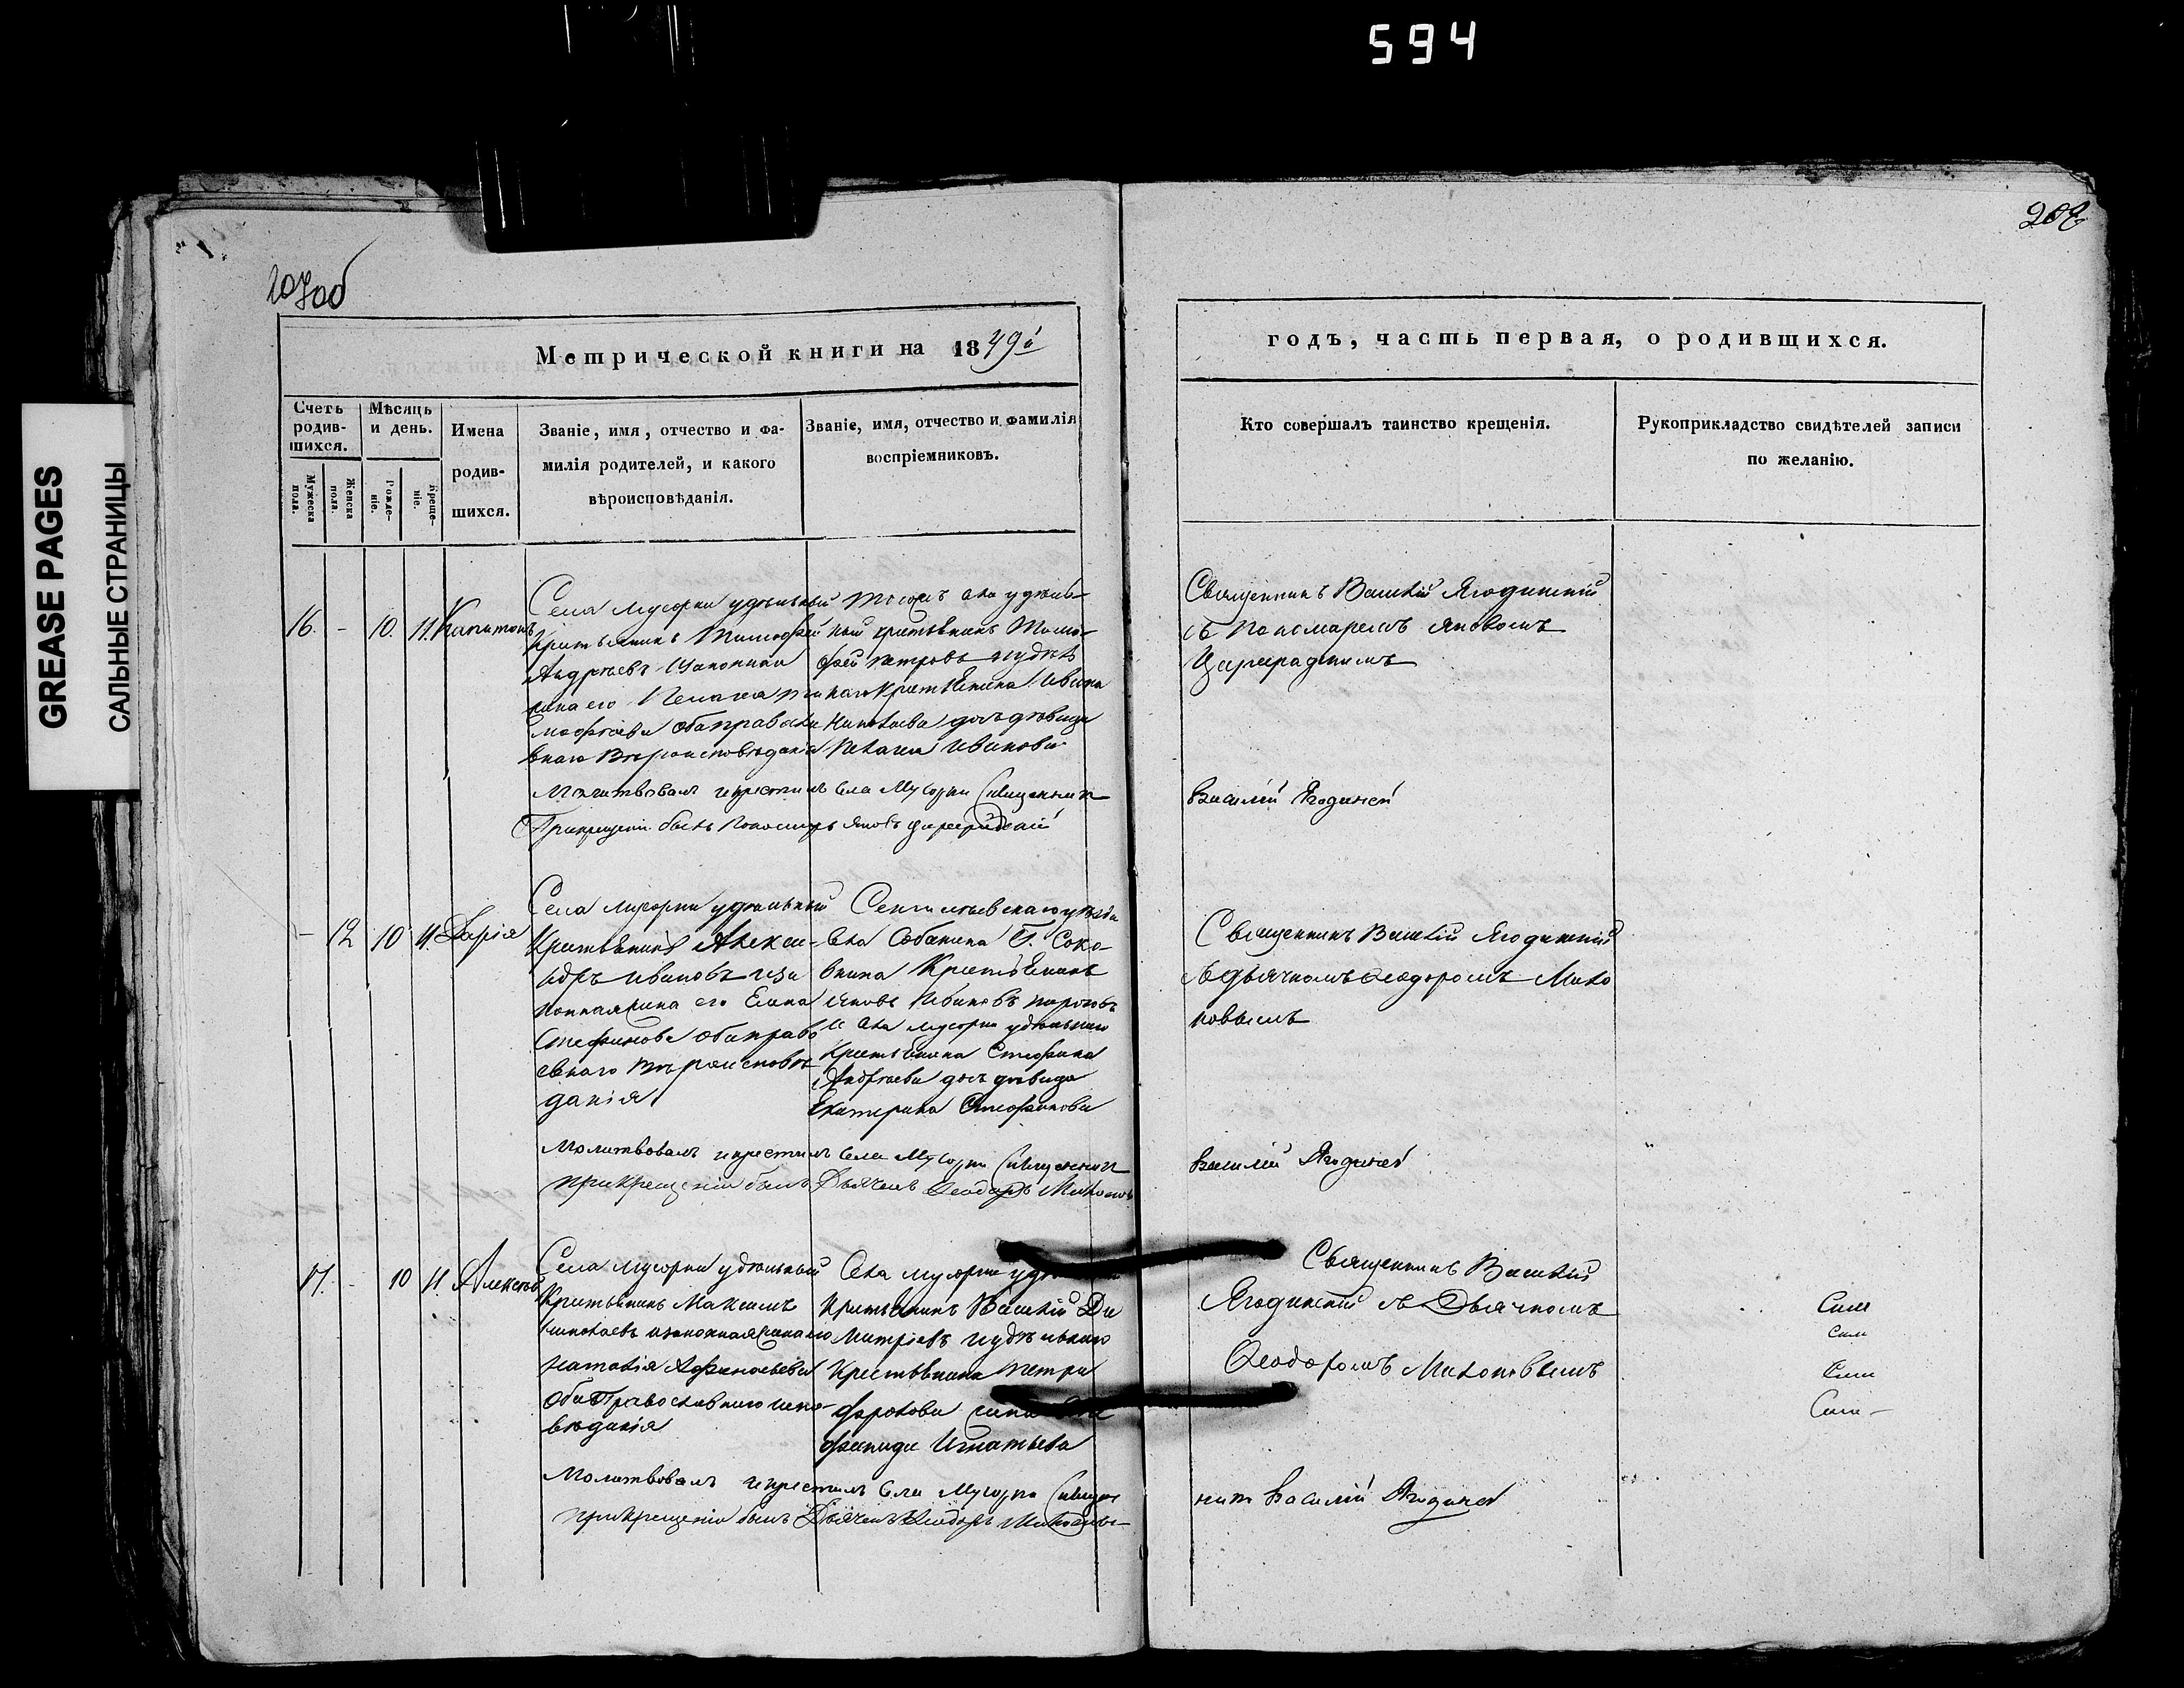 594
208
207об
GREASE PAGES
САЛЬНЫЕ СТРАНИЦЫ
Метрической книги на 1849й
годъ, часть первая, о родившихся.
Счетъ родив-
шихся.
Мужеска пола.
Женска пола.
Мѣсяцъ и день.
Рожде-
ніе.
Креще-
ніе.
Имена
родив-
шихся.
Званіе, имя, отчество и фа-
милія родителей, и какого
вѣроисповѣданія.
Званіе, имя, отчество и фамилія
воспріемниковъ.
Кто совершалъ таинство крещенія.
Рукоприкладство свидѣтелей записи
по желанію.
16. - 10. 11. Капитонъ
Села Мусорки удѣльный
крестьянинъ Тимофей
Андреевъ изаконная
жена его Пелагея
оба правосла
внаго вѣроисповѣданія
тогожъ села удѣль
ный крестьянинъ Тимо
фей Петровъ иудѣль
наго крестьянина Ивана
Николаева дочь дѣвица
Пелагея Иванова
Священникъ Василій Ягодинскій
съ пономаремъ Яковомъ
Цареградскимъ
Молитвовалъ и крестилъ села Мусорки Священникъ
Василий Ягодинский
При крещении былъ Пономарь Яковъ Цареградский
- 12 10 11. Дарія
Села Мусорки удѣльный
крестьянинъ Алекса-
ндръ Ивановъ иза
конная жена его Елена
Стефанова оба право
славнаго вѣроисповѣ
данія
Сенгилѣевскаго уѣзда
села Собакина Г. Соко-
внина крестьянинъ
Яковъ Ивановъ
и села Мусорки удѣльнаго
крестьянина Стефана
Андреева дочь дѣвица
Екатерина Стефанова
Священникъ Василій Ягодинскій
съ дьячкомъ Ѳеодоромъ Мило
новымъ
Молитвовалъ и крестилъ села Мусорки Священникъ
Василий Ягодинский
при крещении былъ Дьячекъ Ѳеодоръ Милоновъ
17. - 10 11. Алексѣй
Села Мусорки удѣльный
крестьянинъ Максимъ
Николаевъ изаконная жена его
Наталія Афанасьева
оба Православнаго испо
вѣданія
Села Мусорки
крестьянинъ Василій Ди
митріевъ иудѣльнаго
крестьянина Петра
Фролова
Игнатьева
Священникъ Василій
Ягодинскій съ Дьячкомъ
Ѳеодоромъ Милоновымъ
Молитвовалъ и крестилъ села Мусорки Священ
никъ Василий Ягодинский
при крещении былъ Дьячекъ Ѳеодоръ Милоновъ